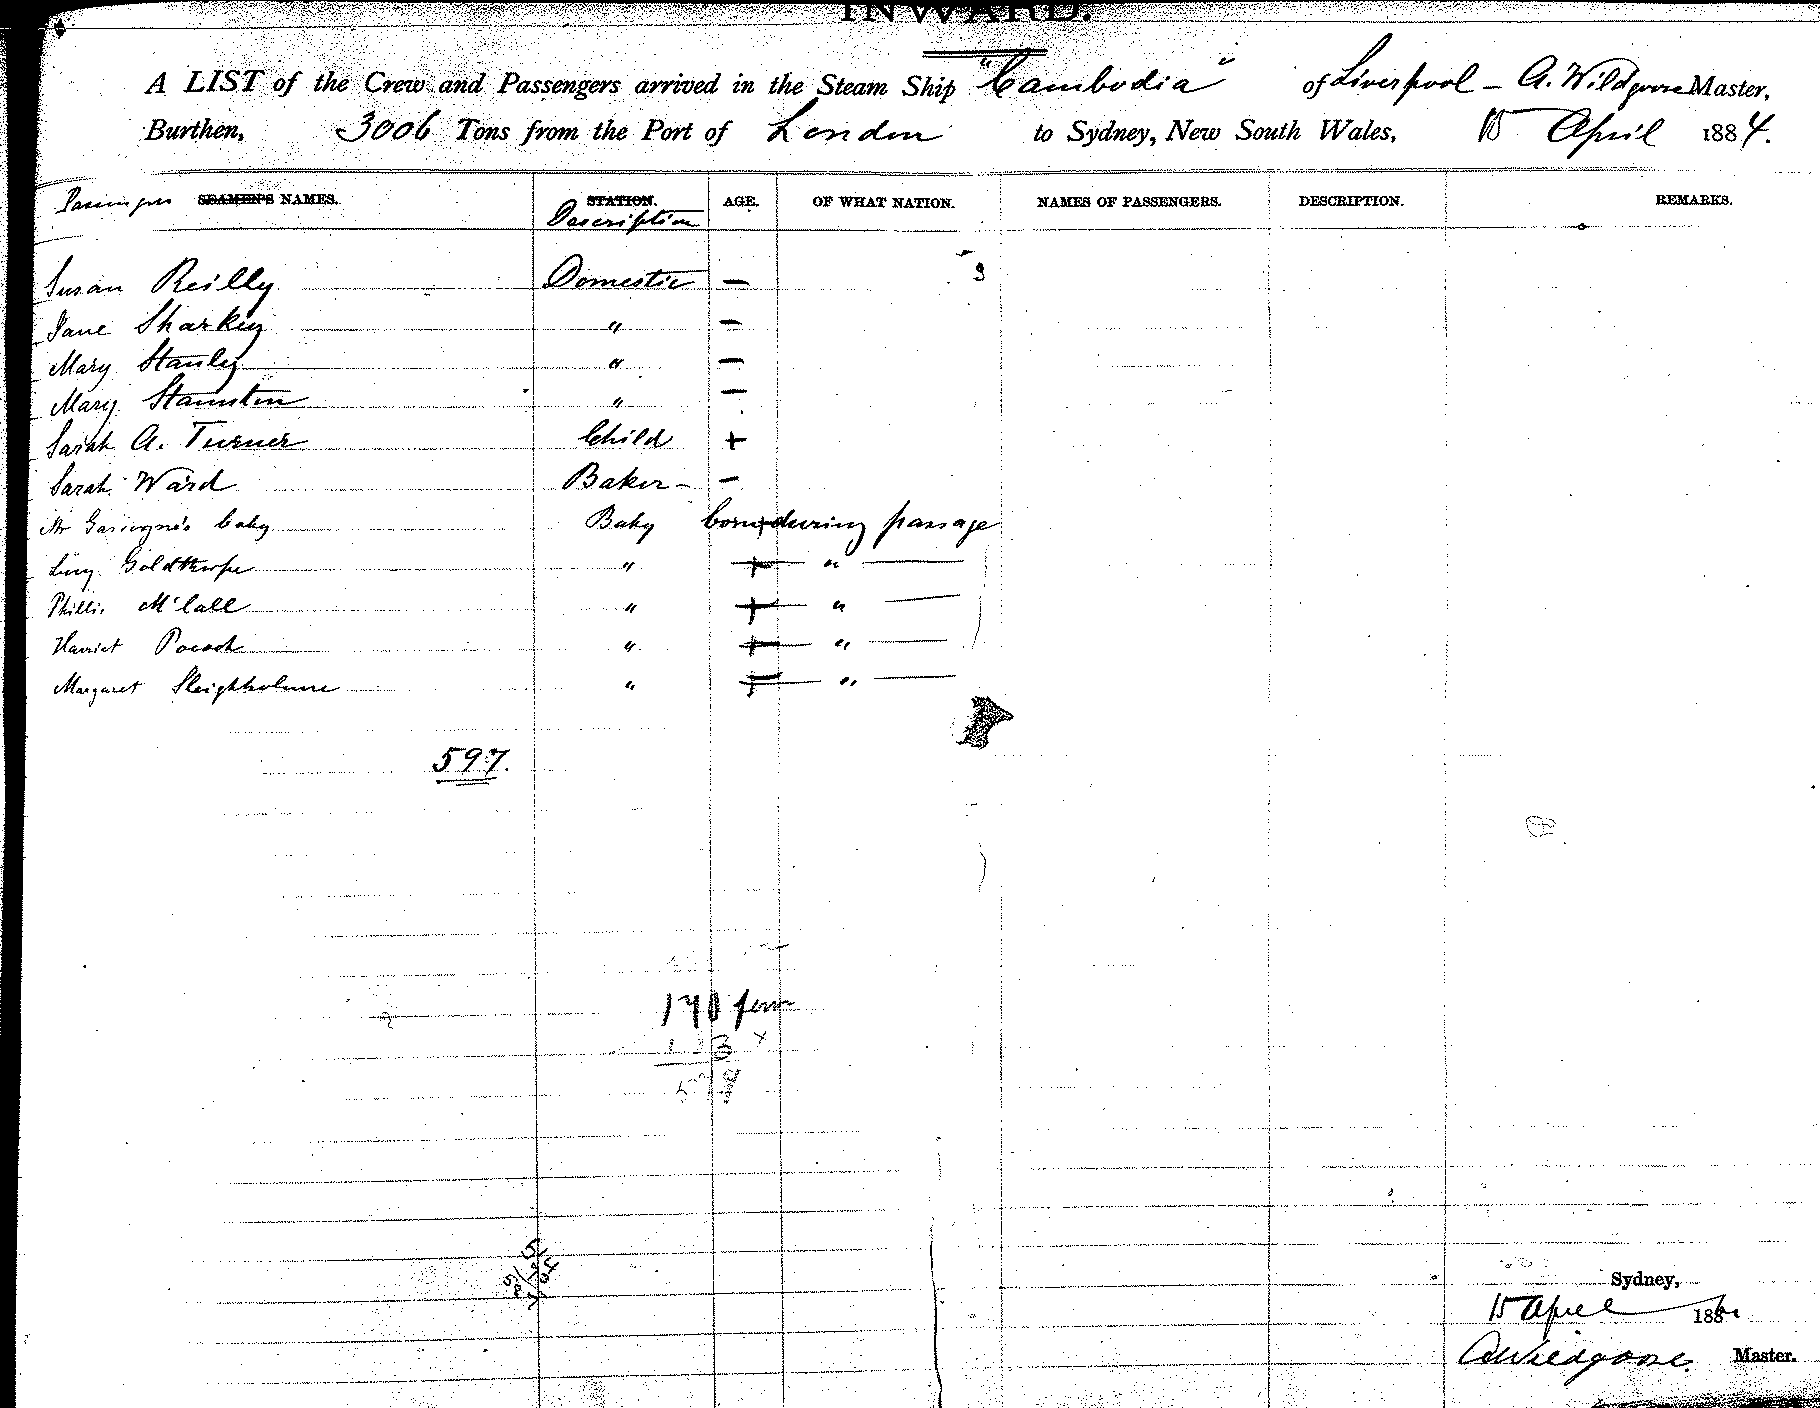 INWARD.
A LIST of the Crew and Passengers arrived in the Steam Ship "Cambodia" of Liverpool - A. Wildgoose Master,
Burthen, 3006 Tons from the Port of London to Sydney, New South Wales, 15 April 1884.
Passengers SEAMEN'S NAMES. STATION. AGE. OF WHAT NATION. NAMES OF PASSENGERS. DESCRIPTION. REMARKS.
Description
Susan Reilly Domestic —
Jane Sharkey " —
Mary Stanley " —
Mary Staunton " —
Sarah A. Turner Child +
Sarah Ward Baker - —
Gascogne's baby Baby born during passage
Lucy Goldthorpe " + — " —
Phillis McCall " + — " —
Harriet Pocock " + — " —
Margaret Sleightholme " + — " —
597.
170
Sydney,
15 April 188
AWildgoose. Master.